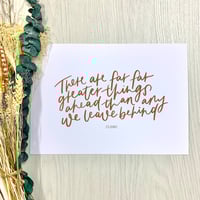 There are far far
greater things
ahead than any
we leave behind